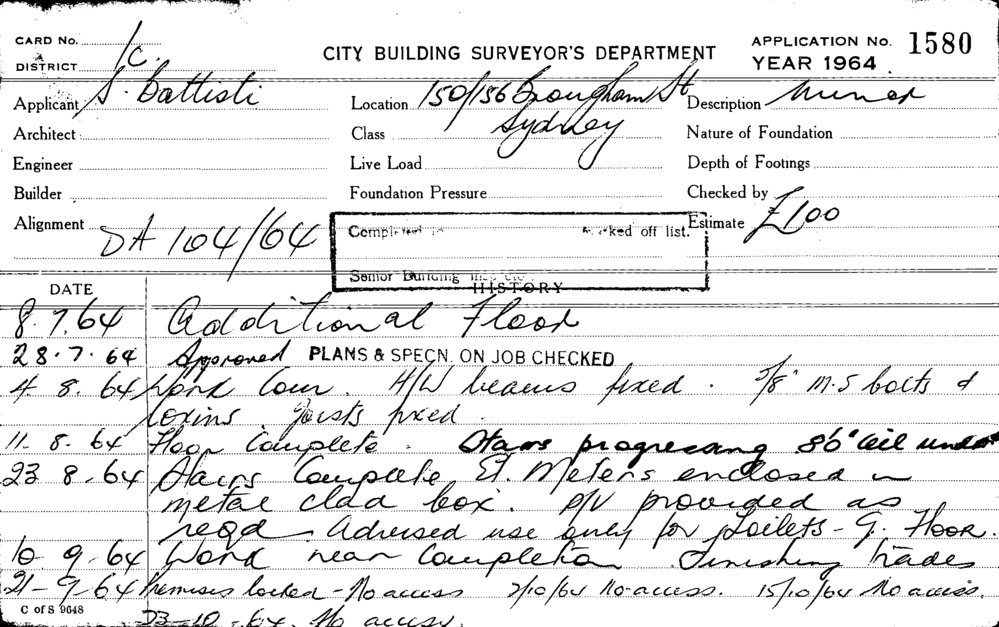 CARD No. 1C.
CITY BUILDING SURVEYOR'S DEPARTMENT
APPLICATION No. 1580
DISTRICT
YEAR 1964
Applicant S. Battisti
Location 150/156 Brougham St
Sydney
Description Minor
Architect
Class
Nature of Foundation
Engineer
Live Load
Depth of Footings
Builder
Foundation Pressure
Checked by
Alignment
DA 104/64
off list.
Estimate £100
Senior Building
HISTORY
DATE
8.7.64 Additional Floor
28.7.64 Approved PLANS & SPECN. ON JOB CHECKED
4.8.64 Work Com. H/W beams fixed. 5/8" M.S bolts &
joists fixed.
11.8.64 Floor Complete. Stairs progressing 8'6" ceil under
23 8.64 Stairs Complete El. Meters enclosed in
metal clad box. provided as
reqd Advised use only for Toilets - G. Floor.
10 9.64 Work near Completion Finishing trades
21-9-64 Premises locked - No access 2/10/64 No access. 15/10/64 No access.
C of S 9648
23-10-64. No access.